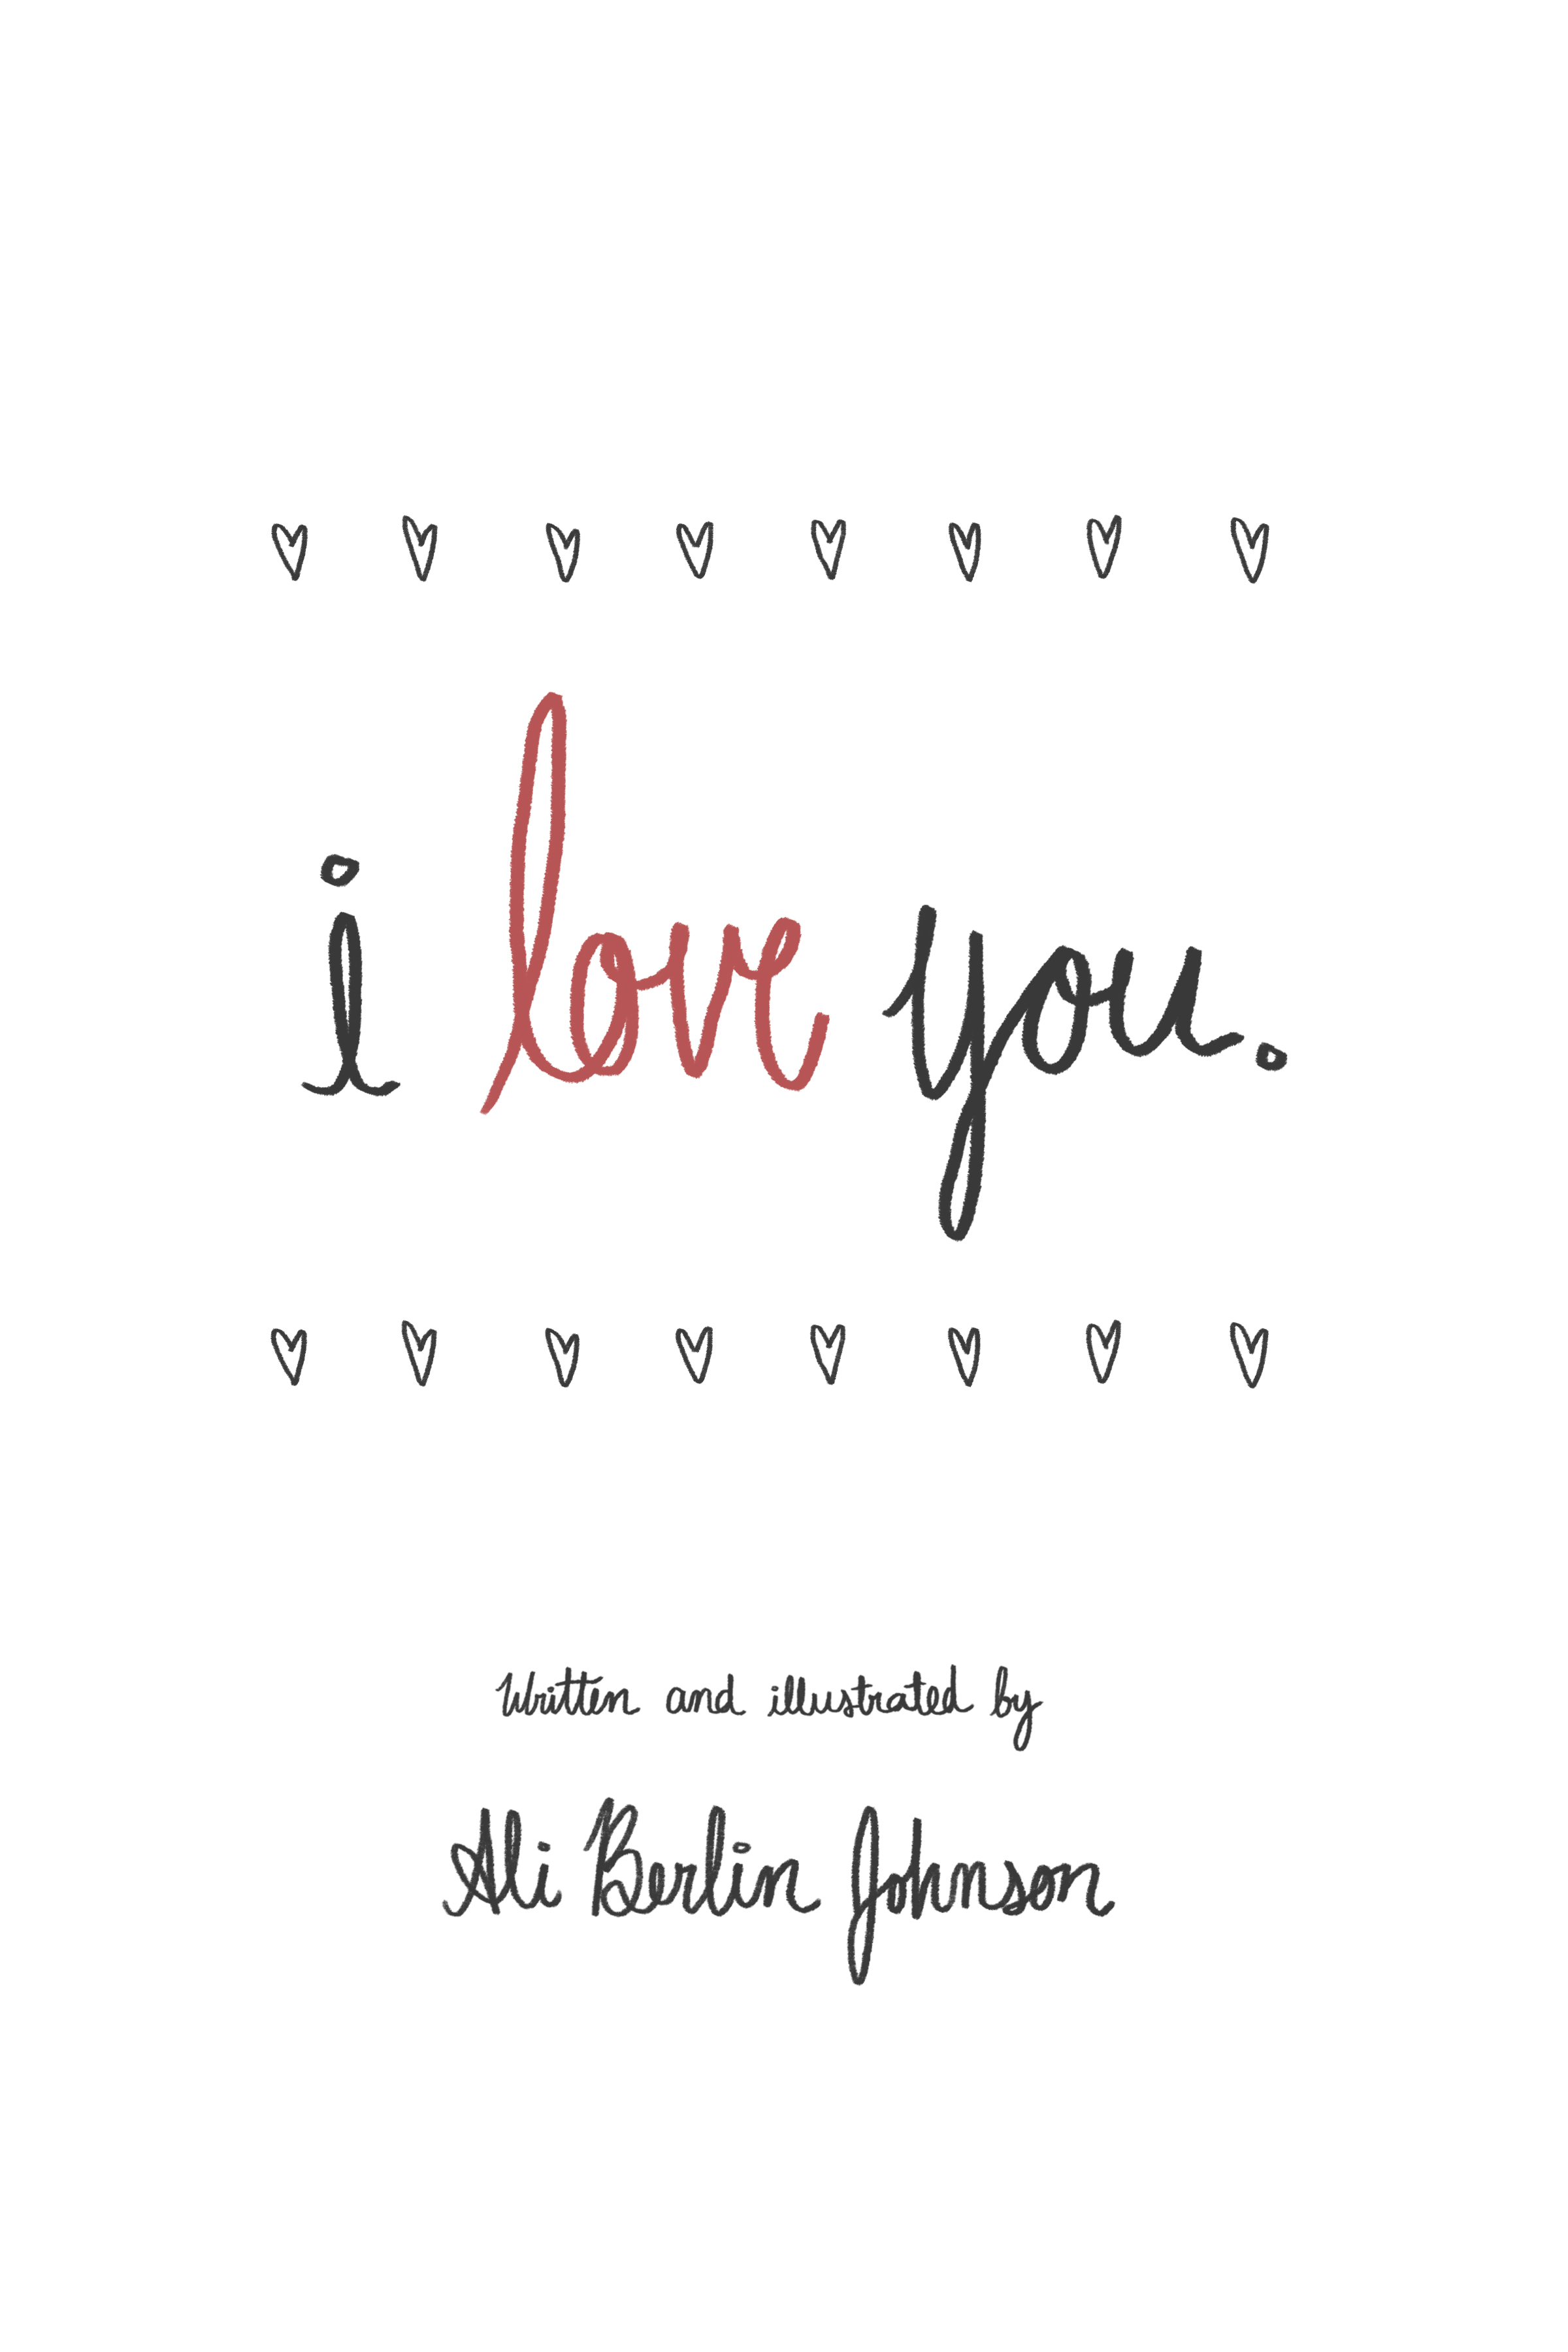 i love you.
Written and illustrated by
Ali Berlin Johnson